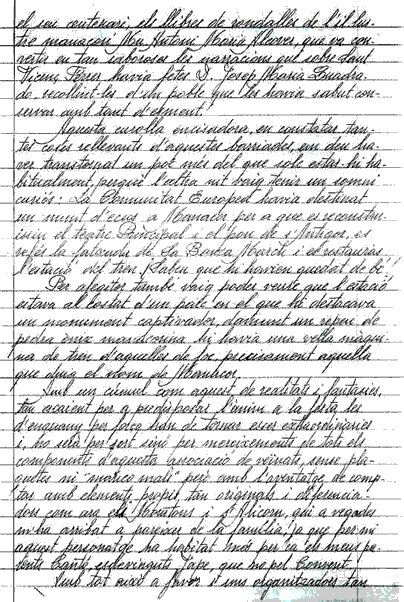 el seu centenari, els llibres de rondalles de l'il·lus-
tre manacorí Mn Antoni Maria Alcover, que va con-
vertir en tan saboroses les narracions que sobre Sant
Vicenç Ferrer havia fetes D. Josep Maria Quadra-
do, recollint-les d'un poble que les havia sabut con-
servar amb tant d'esment.
Aquesta curolla encisadora, en constatar tan-
tes coses rellevants d'aquestes barriades, em deu ha-
ver transtornat un poc més del que sole estar-hi ha-
bitualment, perquè l'altra nit vaig tenir un somni
curiós: La Comunitat Europea havia destinat
un munt d'ecus a Manacor per a que es reconstru-
issin el teatre Principal i el pou de s'Antigor, es
refés la fatxada de Sa Banca March i es restauràs
l'estació del tren. Sabeu que hi havien quedat de bé!
Per afegitó també vaig poder veure que l'estació
estava al costat d'un parc en el que hi destacava
un monument captivador, damunt un repeu de
pedra viva mandronina hi havia una vella màqui-
na de tren d'aquelles de foc precisament aquella
que duia el nom de Manacor.
Amb un cúmul com aquest de realitats i fantasies,
tan escaient per a predisposar l'ànim a la festa les
d'enguany per força han de tornar esser extraordinàries
i, no serà per sort sinó per mereixements de tots els
components d'aquesta associació de veïnats, sense pla-
quetes ni "marico mati" però amb l'avantatge de comp-
tar amb elements propis, tan originals i diferencia-
dors com ara els Moratons i s'Alicorn, qui a vegades
m'ha arribat a parèixer de la família, ja que per mi
aquest personatge ha habitat més per ca els meus pa-
rents Cants, esdevinguts Pape, que no pel Convent.
Amb tot això a favor i uns organitzadors tan